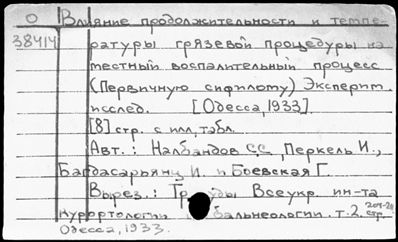 О Влияние продолжительности и темпе-
38414 ратуры грязевой процедуры на
местный воспалительный процесс
(Первичную сифилому) Эксперим.
исслед. [Одесса, 1933]
[8] стр. с илл., табл.
Авт.: Налбандов С.С., Перкель И.,
Багдасарьянц И. и Боевская Г.
Вырез.: Труды Всеукр. ин-та
курортологии бальнеологии. т. 2. стр.
Одесса, 1933.